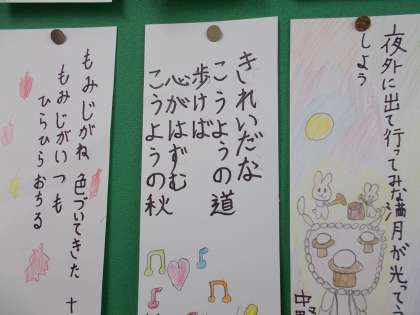 夜外に出て行ってみな満月が光って
しよう
きれいだな
こうようの道
歩けば
心がはずむ
こうようの秋
もみじがね 色づいてきた 十
もみじがいつも
ひらひらおちる